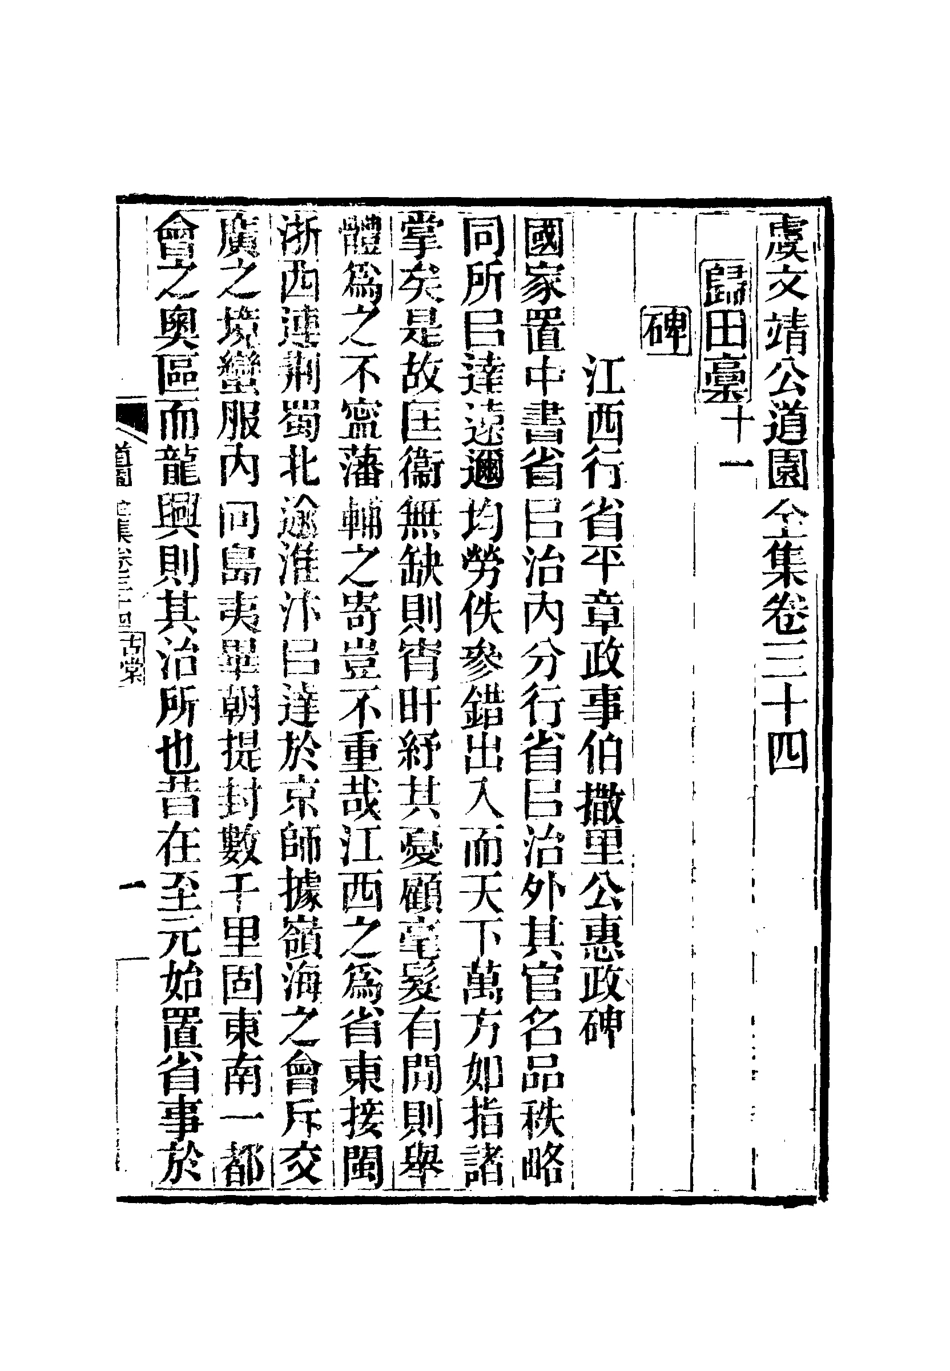 虞文靖公道園全集卷三十四
歸田稾十一
碑
江西行省平章政事伯撒里公惠政碑
國家置中書省㠯治內分行省㠯治外其官名品秩略
同所㠯達遠邇均勞佚參錯出入而天下萬方如指諸
掌矣是故匡衞無缺則宵旰紓其憂顧毫髮有閒則舉
體爲之不寧藩輔之寄豈不重哉江西之爲省東接閩
浙西連荆蜀北逾淮汴㠯達於京師據嶺海之會斥交
廣之境蠻服內向島夷畢朝提封數千里固東南一都
會之奧區而龍興則其治所也昔在至元始置省事於
道園全集卷三十四 古棠
一